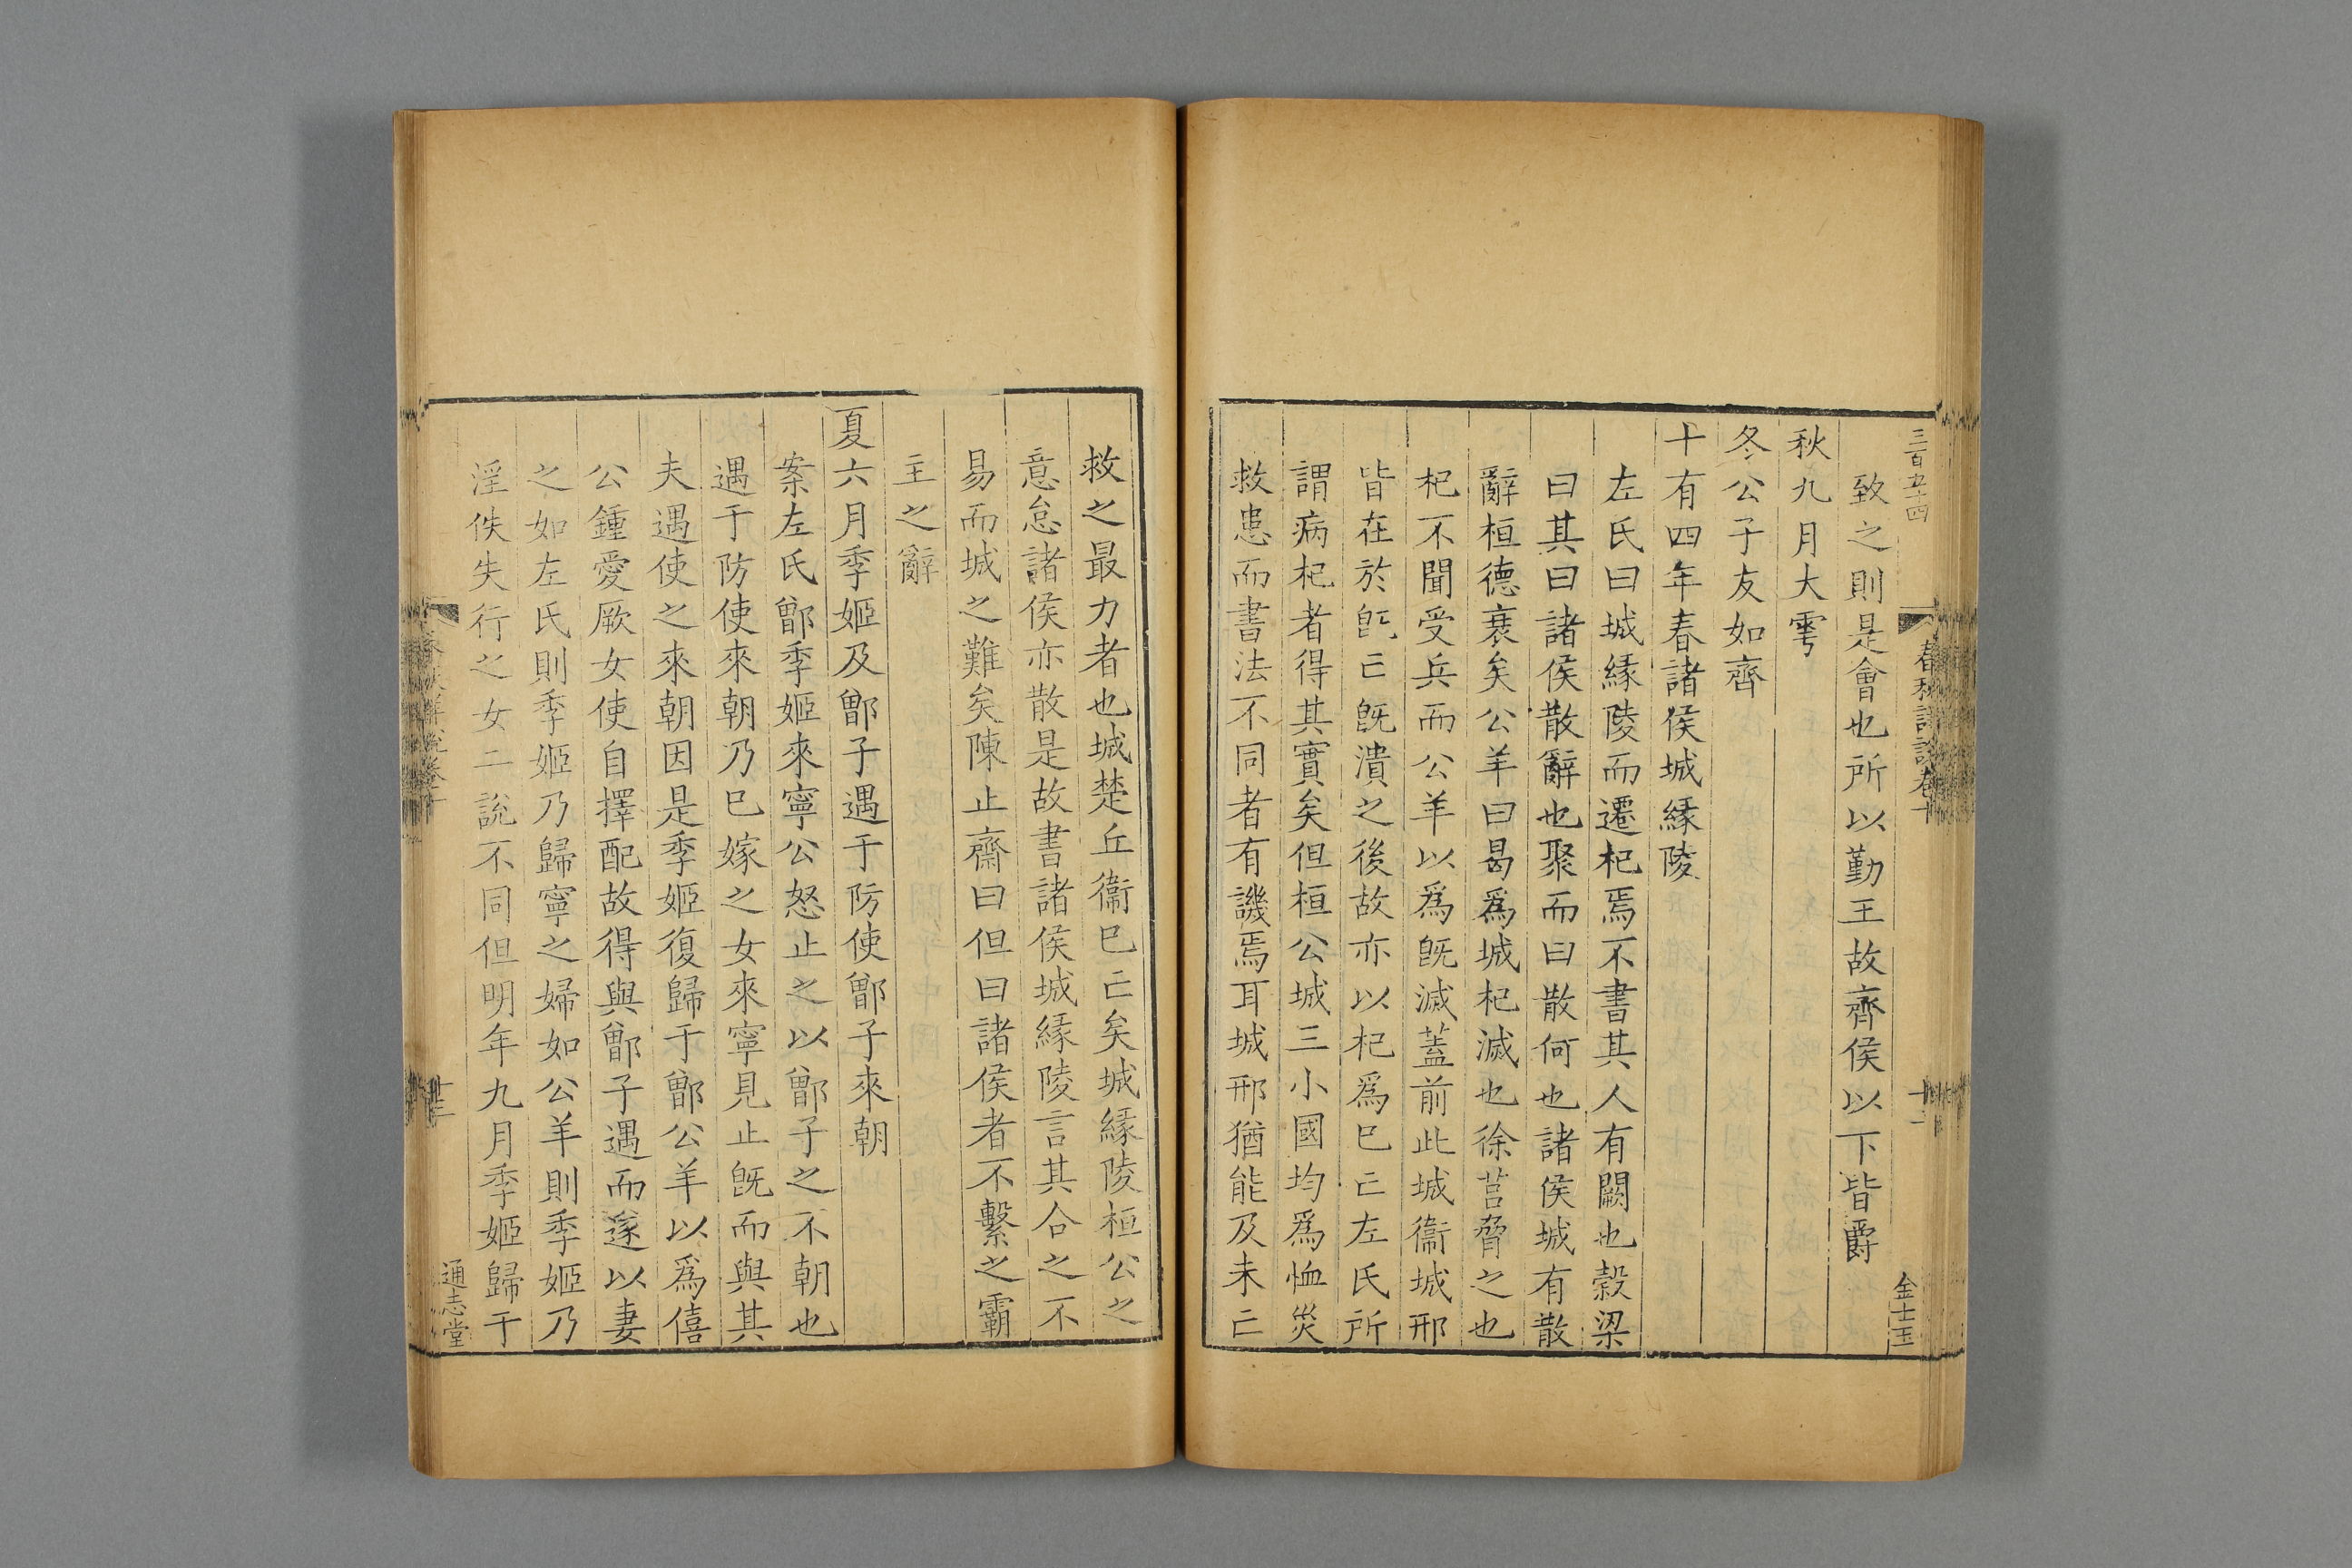 三百五十四
春秋詳說卷十
十二
金士玉
致之則是會也所以勤王故齊侯以下皆爵
秋九月大雩
冬公子友如齊
十有四年春諸侯城緣陵
左氏曰城緣陵而遷杞焉不書其人有闕也穀梁
曰其曰諸侯散辭也聚而曰散何也諸侯城有散
辭桓德衰矣公羊曰曷爲城杞滅也徐莒脅之也
杞不聞受兵而公羊以爲旣滅蓋前此城衞城邢
皆在於旣亡旣潰之後故亦以杞爲已亡左氏所
謂病杞者得其實矣但桓公城三小國均爲恤災
救患而書法不同者有譏焉耳城邢猶能及未亡
救之最力者也城楚丘衞已亡矣城緣陵桓公之
意怠諸侯亦散是故書諸侯城緣陵言其合之不
易而城之難矣陳止齋曰但曰諸侯者不繫之霸
主之辭
夏六月季姬及鄫子遇于防使鄫子來朝
案左氏鄫季姬來寧公怒止之以鄫子之不朝也
遇于防使來朝乃已嫁之女來寧見止旣而與其
夫遇使之來朝因是季姬復歸于鄫公羊以爲僖
公鍾愛厥女使自擇配故得與鄫子遇而遂以妻
之如左氏則季姬乃歸寧之婦如公羊則季姬乃
淫佚失行之女二說不同但明年九月季姬歸于
通志堂